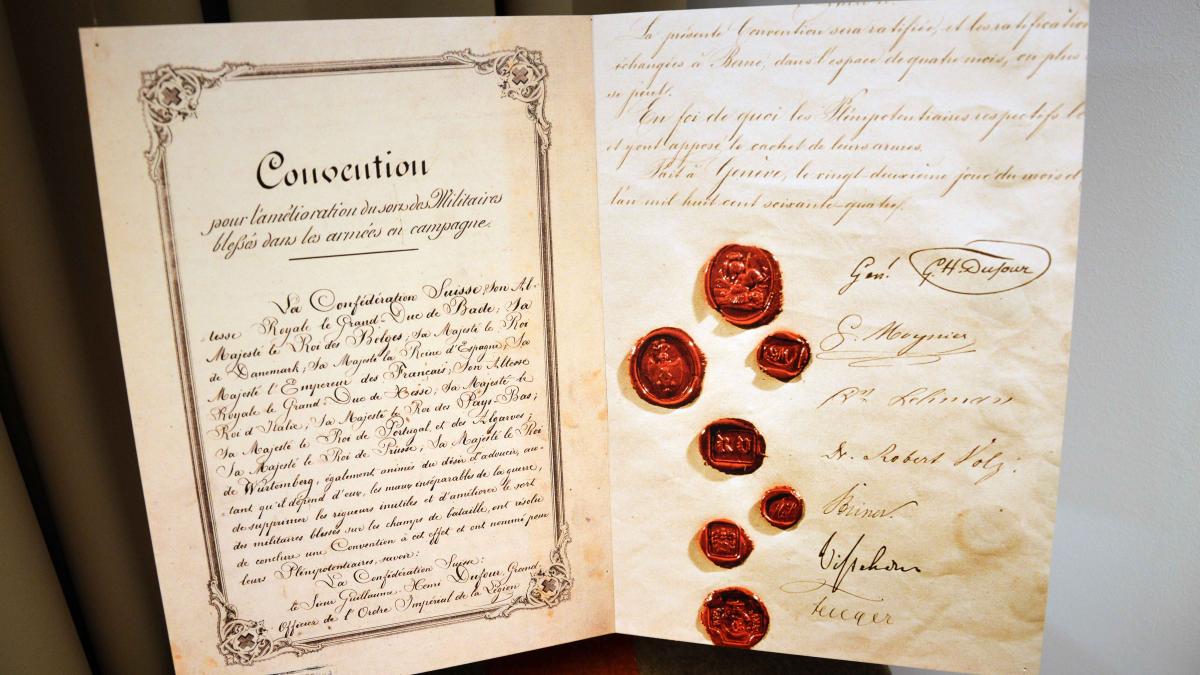 Convention
pour l'amélioration du sort des Militaires
blessés dans les armées en campagne.
La Confédération Suisse; Son Al-
tesse Royale le Grand-Duc de Bade; Sa
Majesté le Roi des Belges; Sa Majesté le Roi
de Danemark; Sa Majesté la Reine d'Espagne; Sa
Majesté l'Empereur des Français; Son Altesse
Royale le Grand-Duc de Hesse; Sa Majesté le
Roi d'Italie; Sa Majesté le Roi des Pays-Bas;
Sa Majesté le Roi de Portugal et des Algarves;
Sa Majesté le Roi de Prusse; Sa Majesté le Roi
de Wurtemberg, également animés du désir d'adoucir, au-
tant qu'il dépend d'eux, les maux inséparables de la guerre,
de supprimer les rigueurs inutiles et d'améliorer le sort
des militaires blessés sur les champs de bataille, ont résolu
de conclure une Convention à cet effet et ont nommé pour
leurs Plénipotentiaires, savoir:
La Confédération Suisse:
le Sieur Guillaume-Henri Dufour, Grand
Officier de l'Ordre Impérial de la Légion
La présente Convention sera ratifiée, et les ratification
échangées à Berne, dans l'espace de quatre mois, ou plus
se peut.
En foi de quoi les Plénipotentiaires respectifs l
et y ont apposé le cachet de leurs armes.
Fait à Genève, le vingt deuxième jour du mois d
l'an mil huit cent soixante-quatre.
Genl G. H. Dufour
G. Moynier
Dr Lehman
Dr. Robert Volz.
Steiner.
Visschers
RV